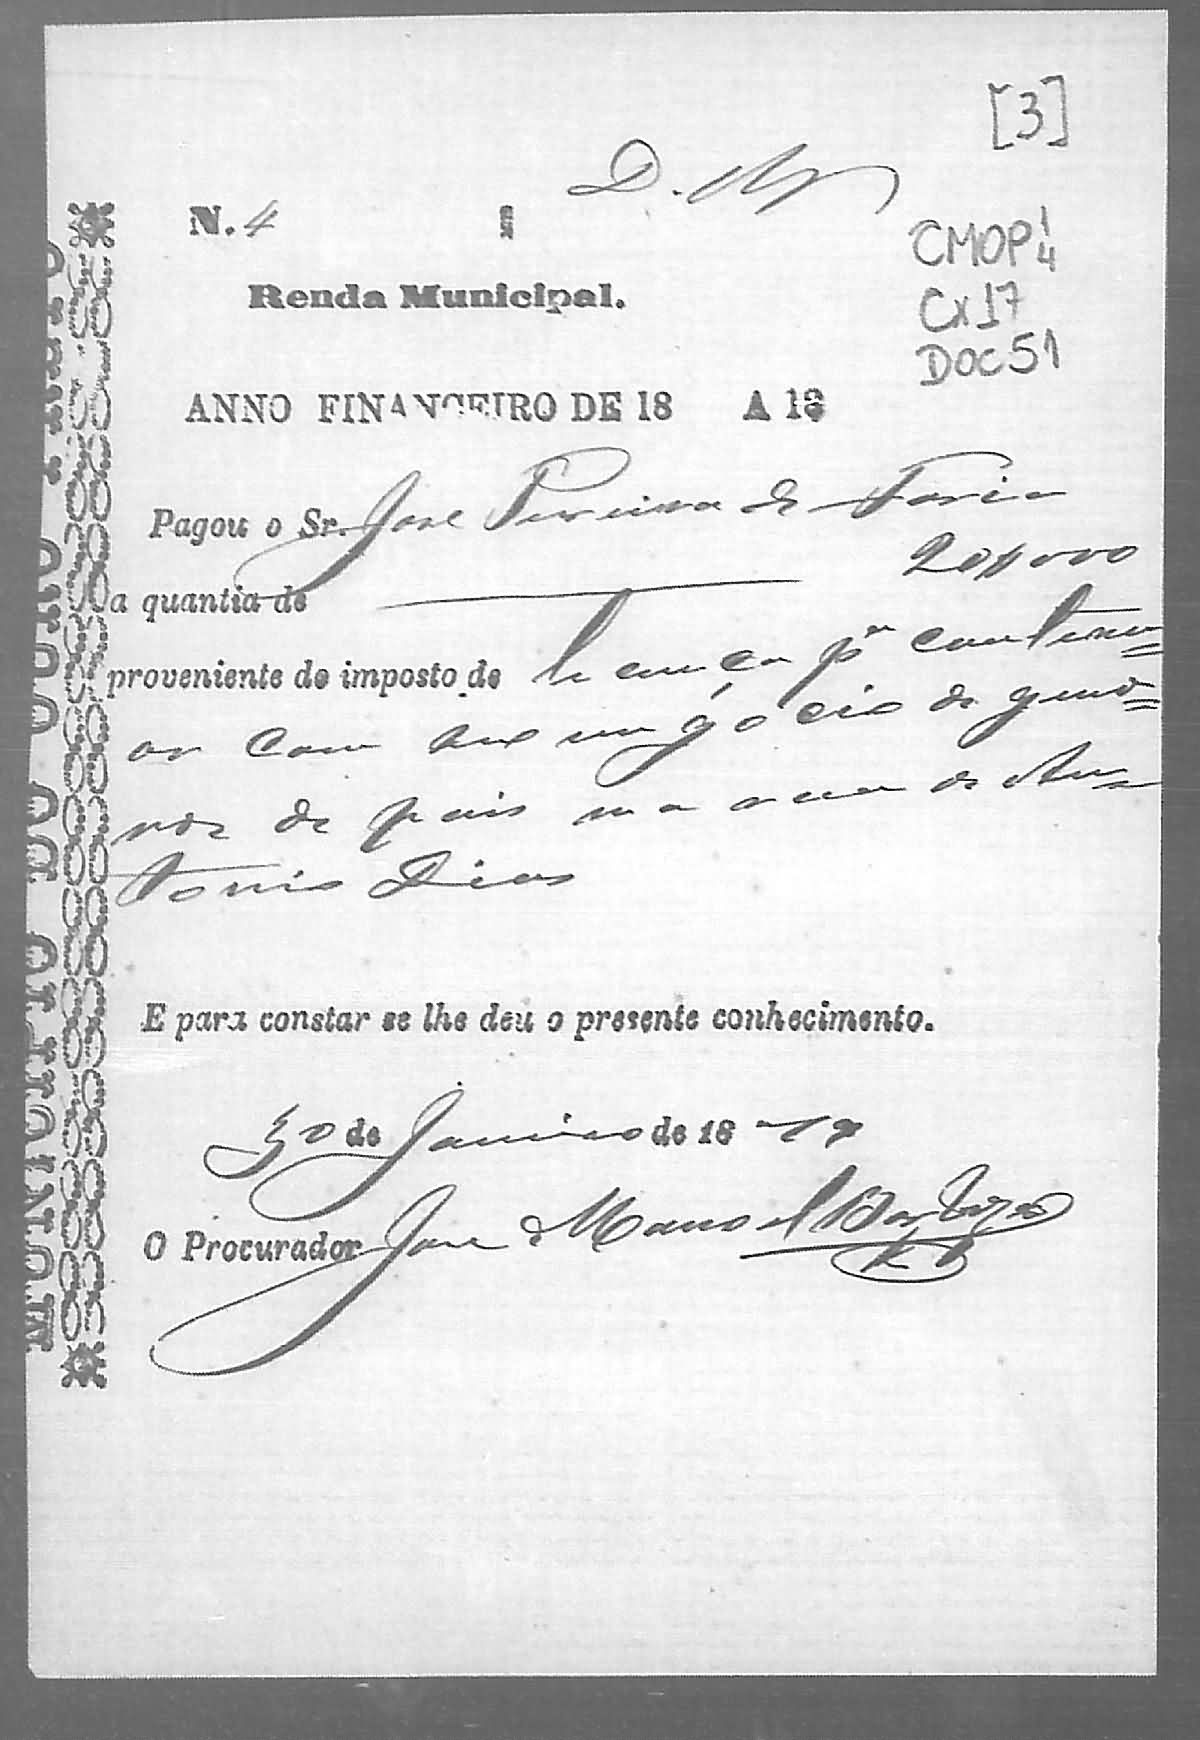 [3]
N. 4
CMOP 1/4
Cx 17
DOC 51
Renda Municipal.
ANNO FINANCEIRO DE 18 A 18
Pagou o Sr. Jose Pereira de Faria
a quantia de 20$000
proveniente do imposto de licença pª continu=
ar com seu negocio de gene=
ros do pais na rua de An=
tonio Dias
E para constar se lhe deu o presente conhecimento.
30 de Janeiro de 18
O Procurador Jose Manoel